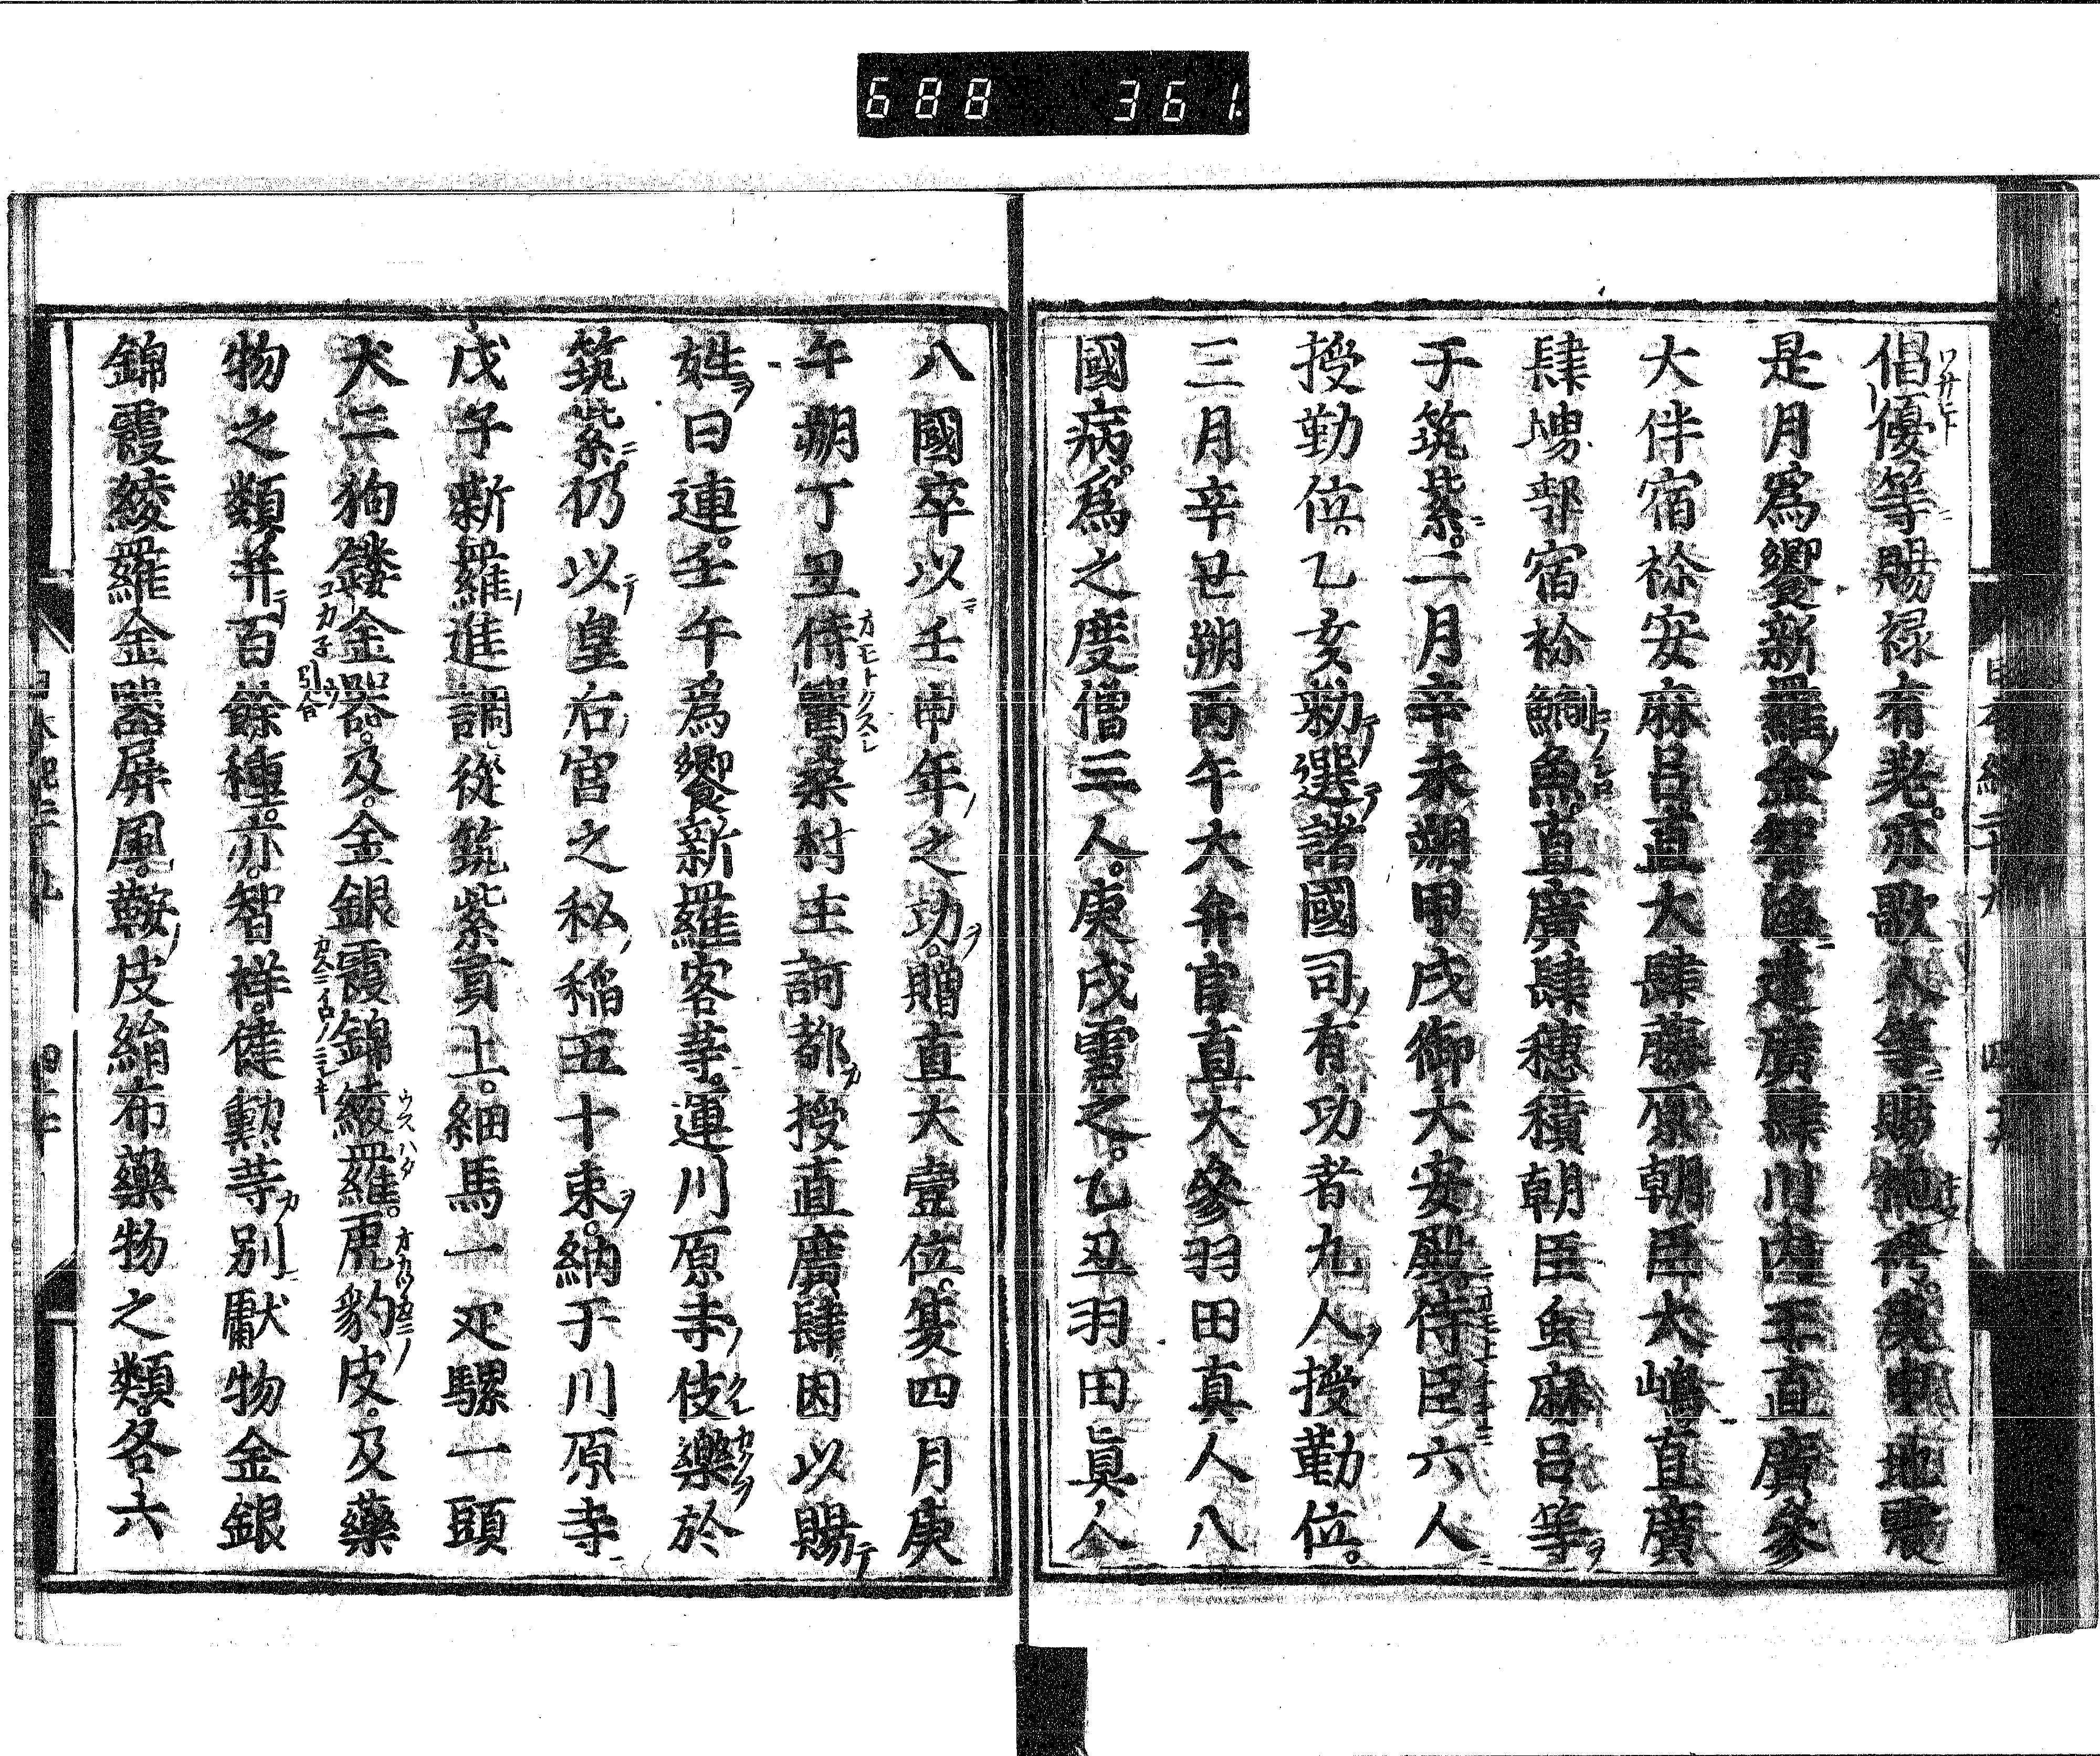 688 361
倡優等賜禄有老亦歌人等賜袍袴庚申地震
是月為饗新羅金智祥遣廣肆川内王直廣參
大伴宿祢安麻呂直大肆藤原朝臣大嶋直廣
肆堺部宿祢鯯魚直廣肆穗積朝臣虫麻呂等
于筑紫二月辛未朔甲戌御大安殿侍臣六人
授勤位乙亥勅選諸國司有功者九人授勤位
三月辛丑朔丙午大弁官直大參羽田真人八
國病為之度僧三人庚戌雪之乙丑羽田真人
八國卒以壬申年之功贈直大壹位夏四月庚
午朔丁丑侍醫桒村主訶都授直廣肆因以賜
姓曰連壬午為饗新羅客等運川原寺伎樂於
筑紫仍以皇后宮之私稲五十束納于川原寺
戊子新羅進調從筑紫貢上細馬一疋騾一頭
犬二狗鏤金器及金銀霞錦綾羅虎豹皮及藥
物之類并百餘種亦智祥健勲等別獻物金銀
錦霞綾羅金器屏風鞍皮絹布藥物之類各六